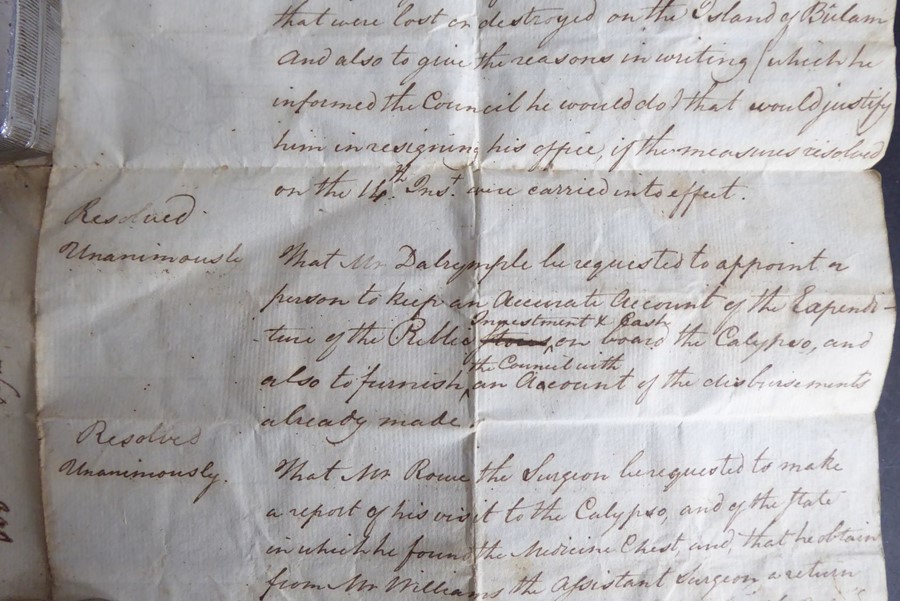 that were lost or destroyed on the Island of Bulam
and also to give the reasons in writing (which he
informed the Council he would do) that would justify
him in resigning his office, if the measures resolved
on the 14th Inst. were carried into effect.
Resolved
Unanimously
That Mr Dalrymple be requested to appoint a
person to keep an Accurate Account of the Expendi-
Investment & Cash
ture of the Public Stores, on board the Calypso, and
the Council with
also to furnish an Account of the disbursements
already made.
Resolved
Unanimously.
That Mr Rowe the Surgeon be requested to make
a report of his visit to the Calypso, and of the State
in which he found the Medicine Chest, and, that he obtain
from Mr Williams the Assistant Surgeon a return